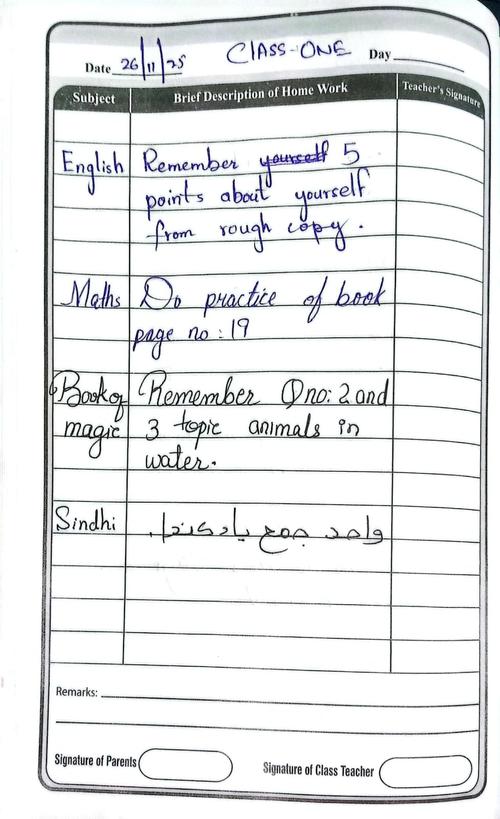 Date 26/11/25 CLASS-ONE Day
Subject Brief Description of Home Work Teacher's Signature
English Remember yourself 5
points about yourself
from rough copy.
Maths Do practice of book
page no : 19
Book of Remember Q no: 2 and
magic 3 topic animals in
water.
Sindhi واحد جمع ياد
Remarks:
Signature of Parents Signature of Class Teacher